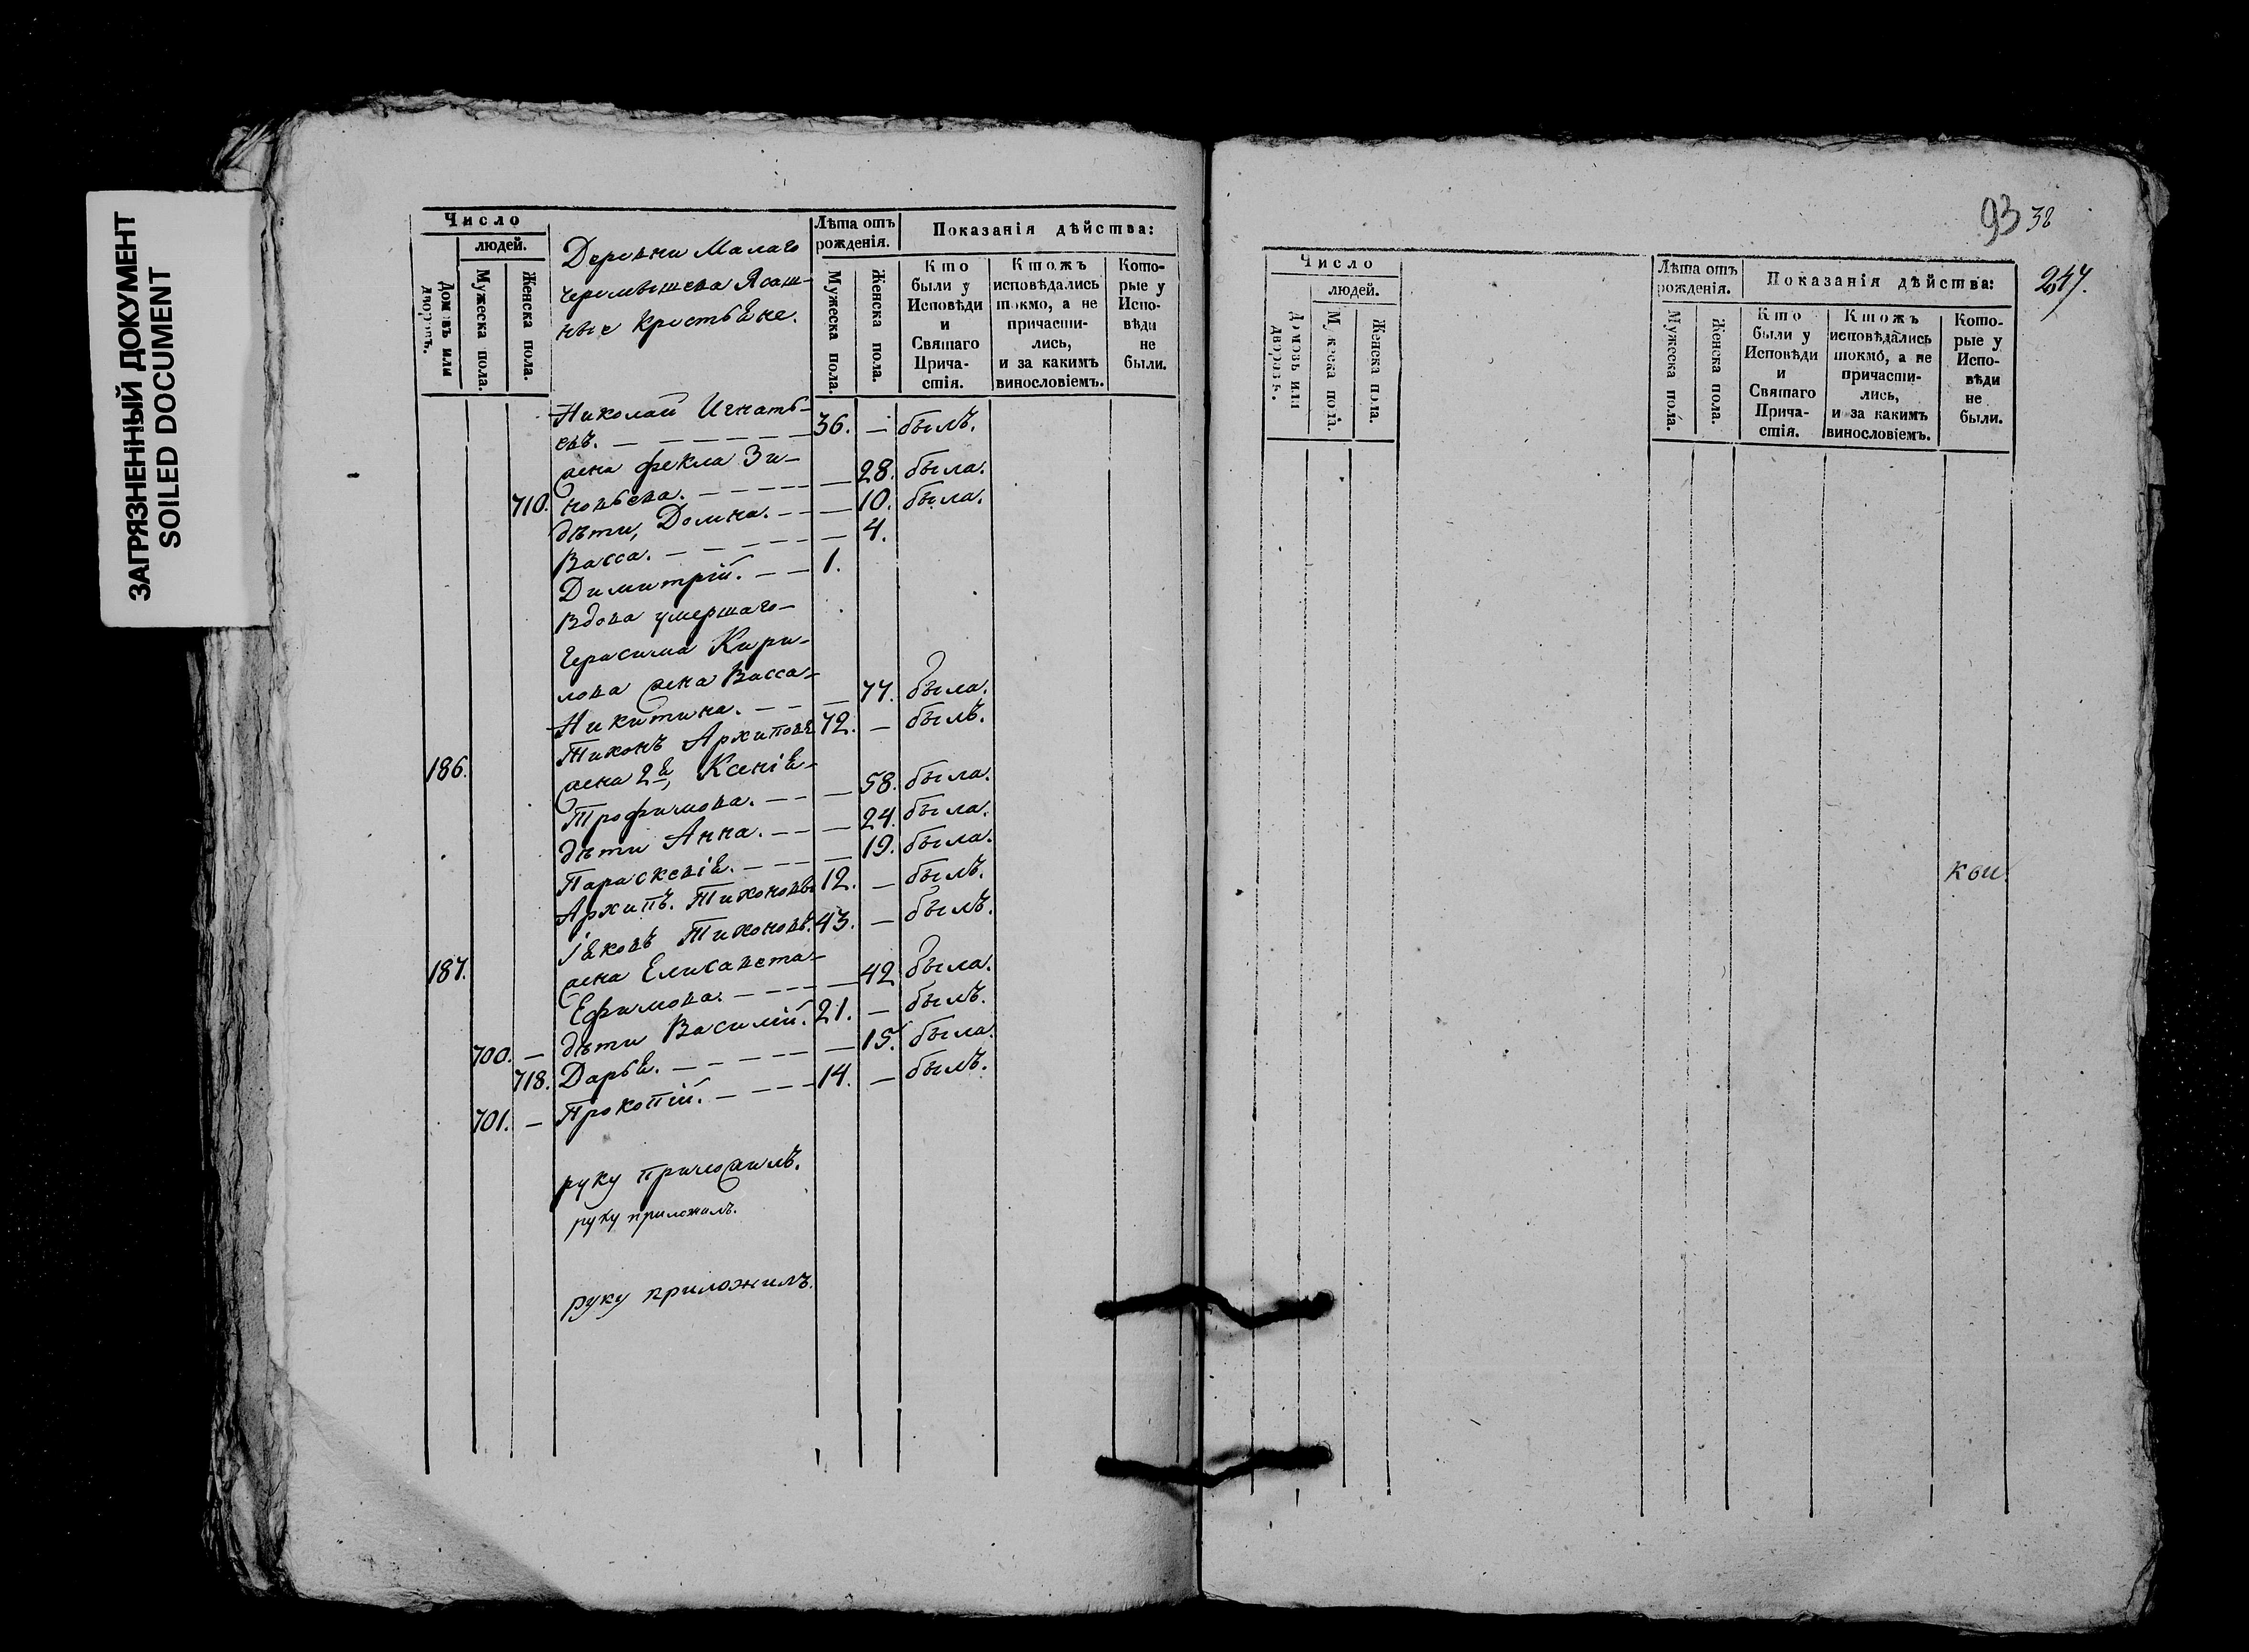 ЗАГРЯЗНЕННЫЙ ДОКУМЕНТ
SOILED DOCUMENT
Число
людей.
Домовъ или дворовъ.
Мужеска пола.
Женска пола.
Деревни Малаго
Черемышева Ясаш-
ные Крестьѧне.
Лѣта отъ
рожденія.
Мужеска пола.
Женска пола.
Показанія дѣйства:
Кто
были у
Исповѣди
и
Святаго
Прича-
стія.
Ктожъ
исповѣдались
токмо, а не
причасти-
лись,
и за какимъ
винословіемъ.
Кото-
рые у
Испо-
вѣди
не
были.
Николай Игнать-
евъ. — 36. — былъ.
жена Фекла Зи-
710. новьева. — 28. была.
дѣти, Домна. — 10. была.
Васса. — 4.
Димитрій. — 1.
Вдова умершаго
Герасима Кири-
лова жена Васса
Никитина. — 77. была.
186. Тихонъ Архиповъ 72. — былъ.
жена 2ѧ, Ксеніѧ
Трофимова. — 58. была.
дѣти Анна. — 24. была.
Параскевіѧ. — 19. была.
Архипъ. Тихоновъ 12. — былъ.
187. Іѧковъ Тихоновъ. 43. — былъ.
жена Елисавета
Ефимова. — 42 была.
700. — дѣти Василій. 21. — былъ.
718. Дарьѧ. — 15. была.
701. — Прокопій. — 14. — былъ.
руку приложилъ.
руку приложилъ.
руку приложилъ.
93 38
247.
Число
людей.
Домовъ или дворовъ.
Мужеска пола.
Женска пола.
Лѣта отъ
рожденія.
Мужеска пола.
Женска пола.
Показанія дѣйства:
Кто
были у
Исповѣди
и
Святаго
Прича-
стія.
Ктожъ
исповѣдались
токмо, а не
причасти-
лись,
и за какимъ
винословіемъ.
Кото-
рые у
Испо-
вѣди
не
были.